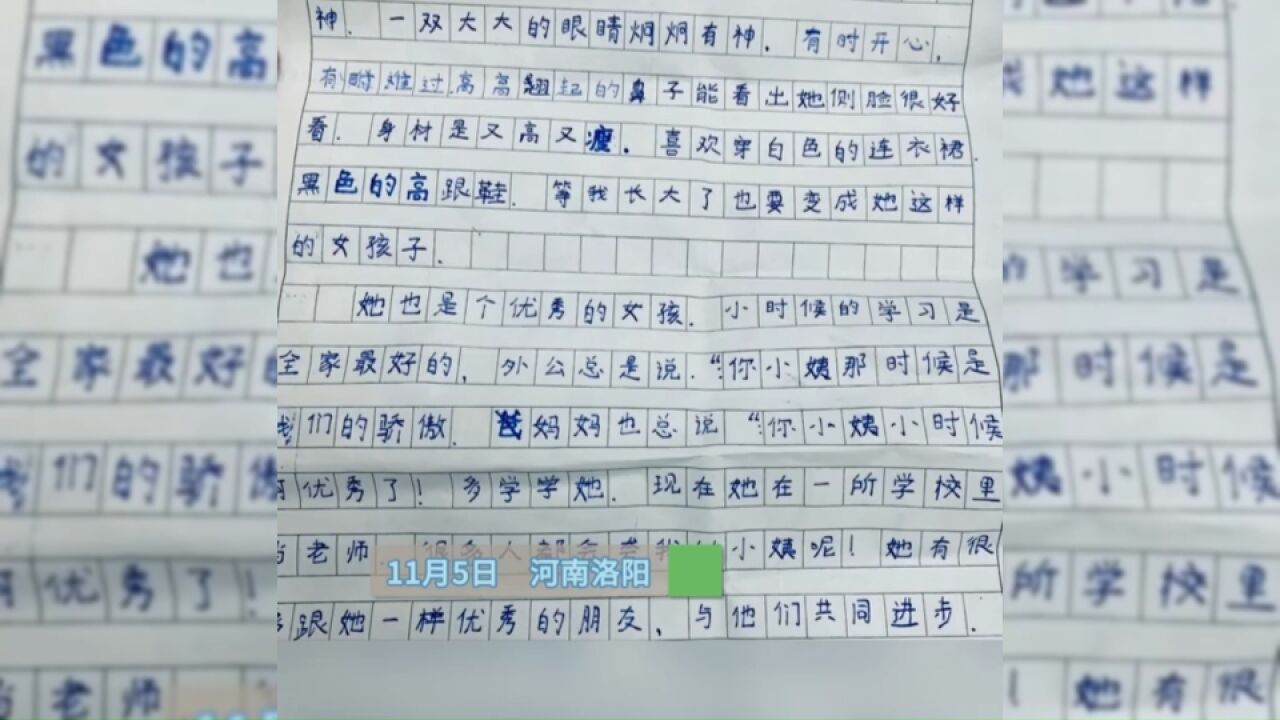 神．一双大大的眼睛炯炯有神．有时开心，
有时难过．高高翘起的鼻子能看出她侧脸很好
看．身材是又高又瘦．喜欢穿白色的连衣裙．
黑色的高跟鞋．等我长大了也要变成她这样
的女孩子．
她也是个优秀的女孩．小时候的学习是
全家最好的，外公总是说．“你小姨那时候是
我们的骄傲．妈妈也总说“你小姨小时候
优秀了！多学学她．现在她在一所学校里
当老师．很多人都会小姨呢！她有很
11月5日 河南洛阳
跟她一样优秀的朋友，与他们共同进步．